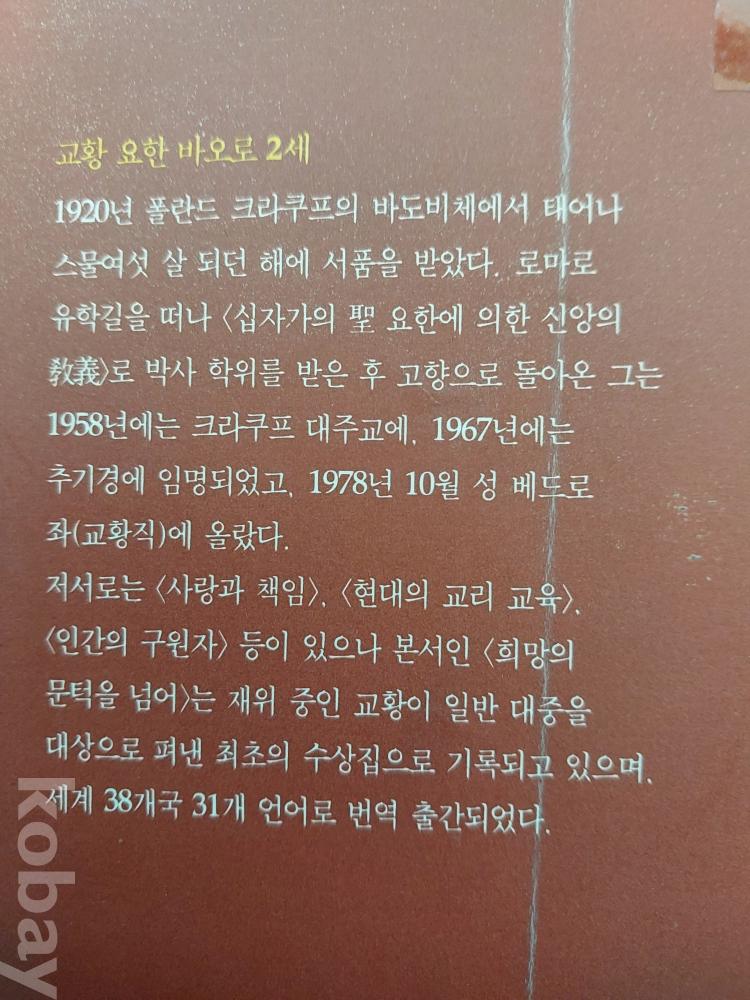 교황 요한 바오로 2세
1920년 폴란드 크라쿠프의 바도비체에서 태어나
스물여섯 살 되던 해에 서품을 받았다. 로마로
유학길을 떠나 〈십자가의 聖 요한에 의한 신앙의
敎義〉로 박사 학위를 받은 후 고향으로 돌아온 그는
1958년에는 크라쿠프 대주교에, 1967년에는
추기경에 임명되었고, 1978년 10월 성 베드로
좌(교황직)에 올랐다.
저서로는 〈사랑과 책임〉, 〈현대의 교리 교육〉,
〈인간의 구원자〉 등이 있으나 본서인 〈희망의
문턱을 넘어〉는 재위 중인 교황이 일반 대중을
대상으로 펴낸 최초의 수상집으로 기록되고 있으며,
세계 38개국 31개 언어로 번역 출간되었다.
kobay